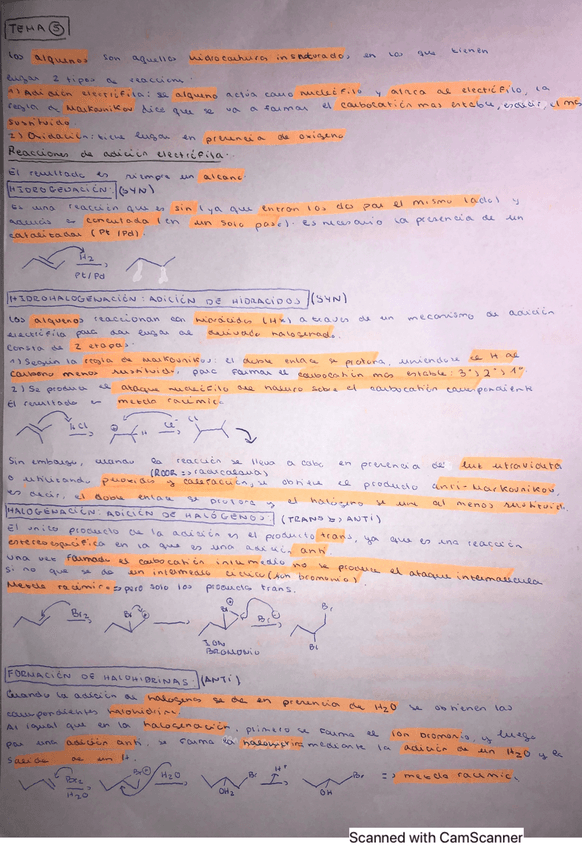 TEMA 5
Los alquenos son aquellos hidrocarburos insaturados, en los que tienen
lugar 2 tipos de reacciones:
1) Adición electrófila: el alqueno actúa como nucleófilo y ataca al electrófilo, la
regla de Markovnikov dice que se va a formar el carbocatión más estable, es decir, el más
sustituido
2) Oxidación: tiene lugar en presencia de oxígeno
Reacciones de adición electrófila:
El resultado es siempre un alcano
HIDROGENACIÓN: (SYN)
Es una reacción que es sin (ya que entran los dos por el mismo lado) y
además es concertada (en un solo paso). Es necesario la presencia de un
catalizador (Pt/Pd)
H2
Pt/Pd
HIDROHALOGENACIÓN: ADICIÓN DE HIDRÁCIDOS (SYN)
Los alquenos reaccionan con hidrácidos (HX) a través de un mecanismo de adición
electrófila para dar lugar al derivado halogenado.
Consta de 2 etapas:
1) Según la regla de Markovnikov: el doble enlace se protona, uniéndose el H al
carbono menos sustituido, para formar el carbocatión más estable: 3º>2º>1º
2) Se produce el ataque nucleófilo del haluro sobre el carbocatión correspondiente
El resultado es mezcla racémica
HCl Cl⁻ Cl
Sin embargo, cuando la reacción se lleva a cabo en presencia de luz ultravioleta
(ROOR => radicalaria)
o utilizando peróxido y calefacción, se obtiene el producto anti-Markovnikov,
es decir, el doble enlace se protona y el halógeno se une al menos sustituido.
HALOGENACIÓN: ADICIÓN DE HALÓGENOS (TRANS o ANTI)
El único producto de la adición es el producto trans, ya que es una reacción
estereoespecífica en la que es una adición anti
Una vez formado el carbocatión intermedio no se produce el ataque intermolecular
si no que se da un intermedio cíclico (ion bromonio)
Mezcla racémica => pero solo los producto trans.
Br2 Br Br⊕ Br⁻ Br
ION
BROMONIO
Br
FORMACIÓN DE HALOHIDRINAS: (ANTI)
Cuando la adición de halógeno se da en presencia de H2O se obtienen las
correspondientes halohidrinas.
Al igual que en la halogenación, primero se forma el ion bromonio, y luego
por una adición anti, se forma la halohidrina mediante la adición de un H2O y la
salida de un H.
Br2 Br⊕ H2O Br H⁺ Br => mezcla racémica.
H2O OH2 OH
Scanned with CamScanner